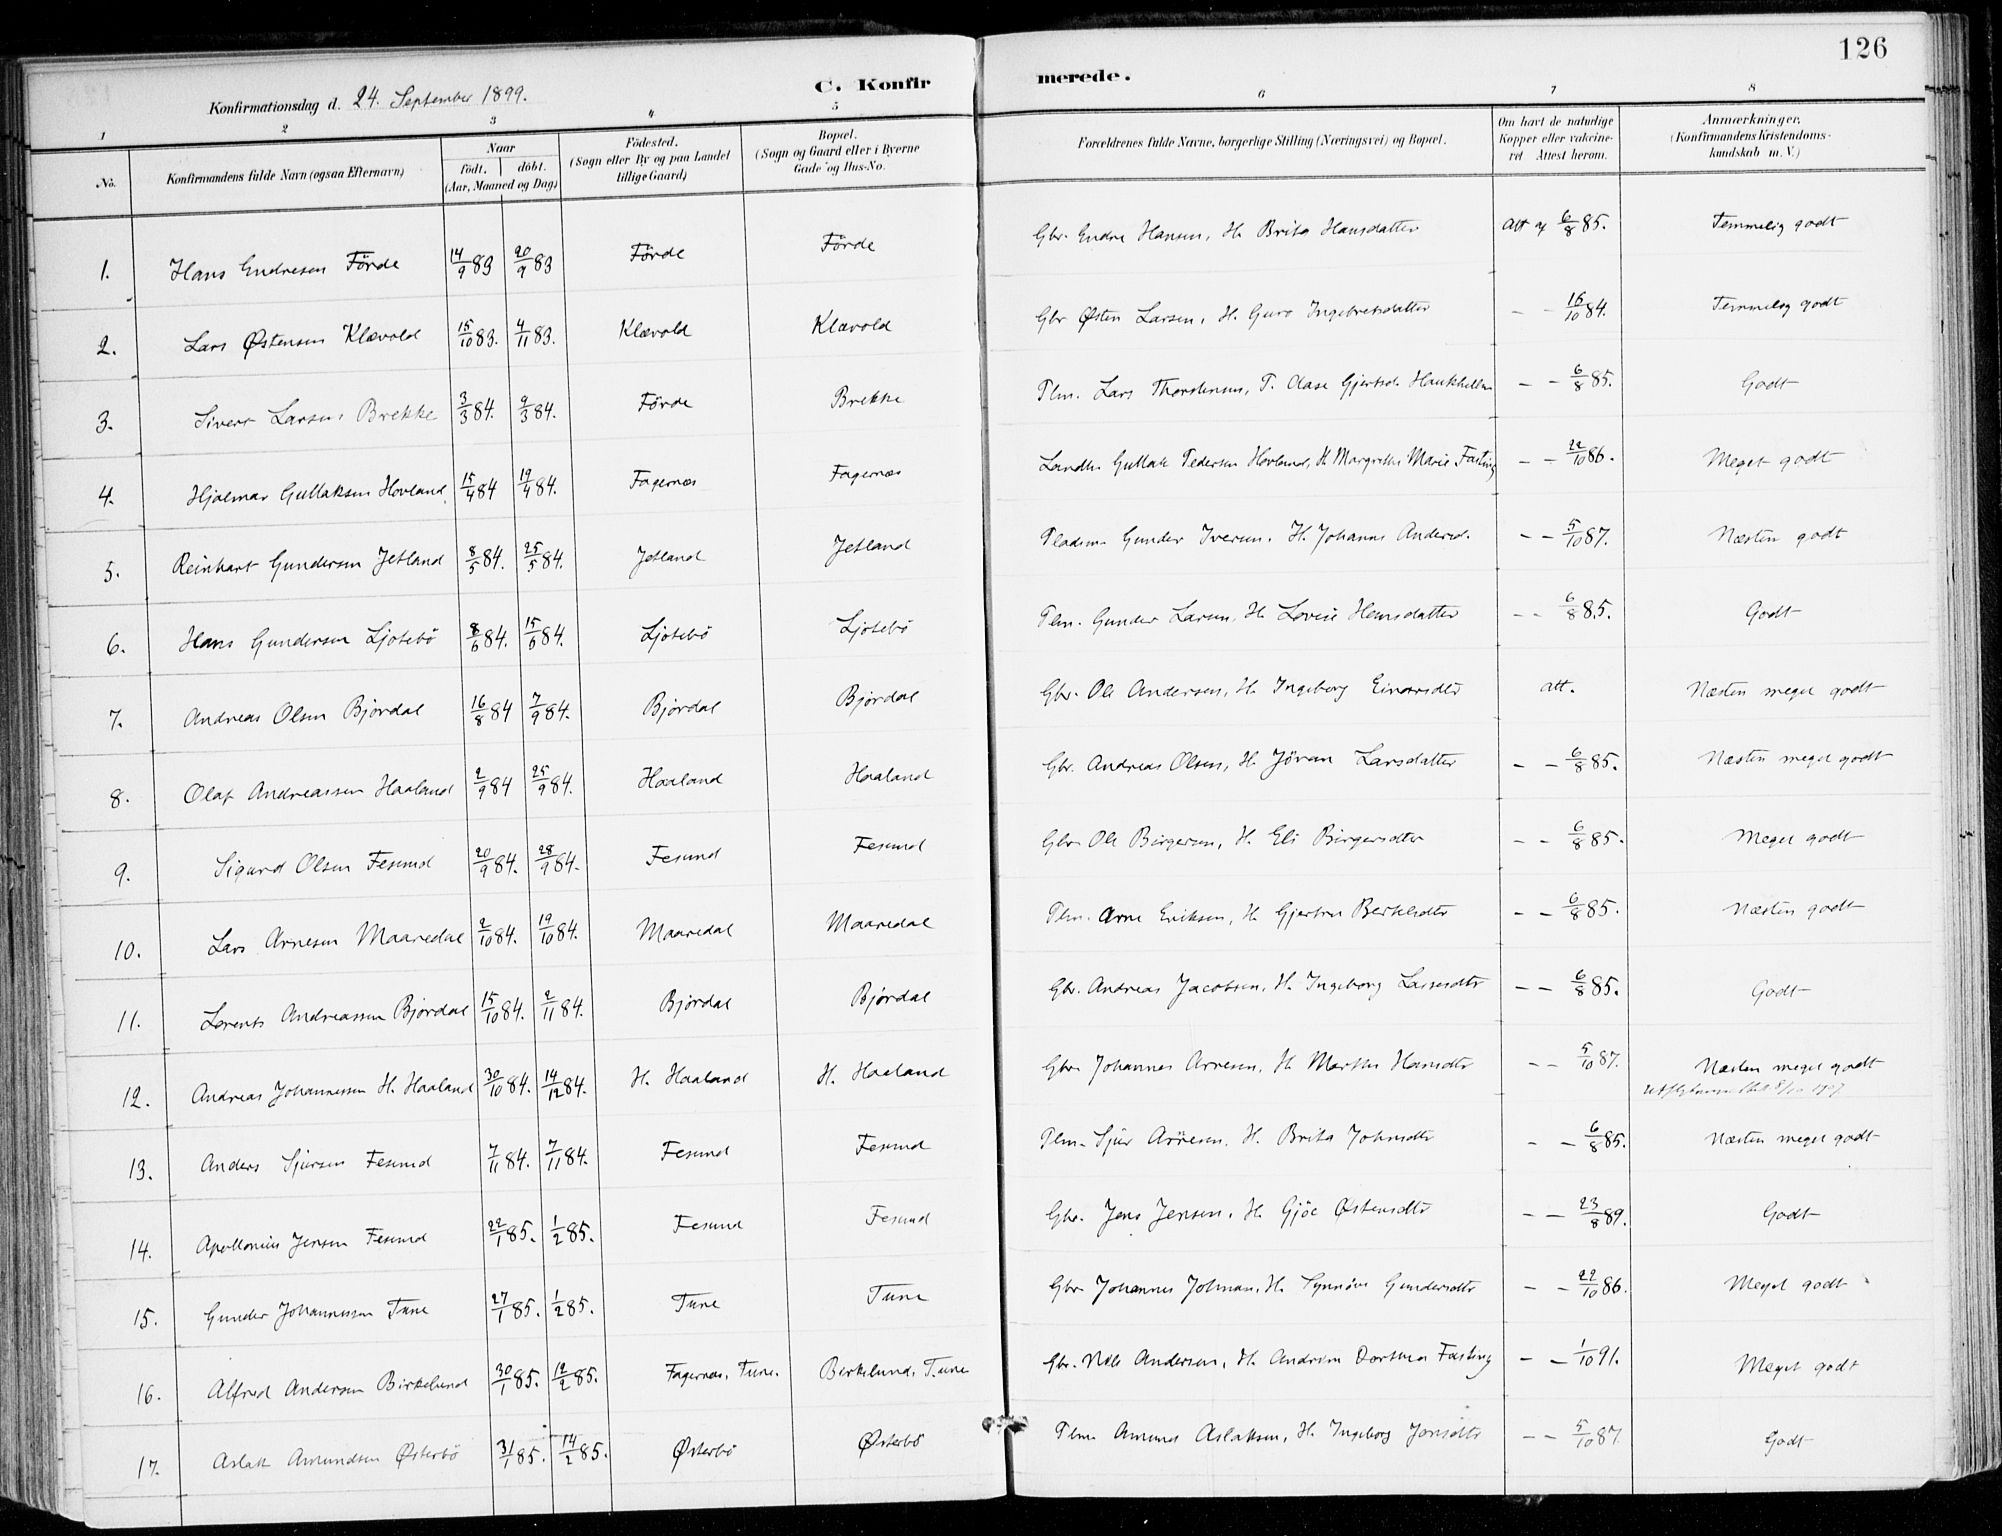 126
C. Konfirmerede.
Konfirmationsdag d. 24. September 1899.
1 2 3 4 5 6 7 8
No. Konfirmandens fulde Navn (ogsaa Efternavn) Naar födt. döbt. (Aar, Maaned og Dag) Födested. (Sogn eller By og paa Landet tillige Gaard) Bopæl. (Sogn og Gaard eller i Byerne Gade og Hus-No. Forældrenes fulde Navne, borgerlige Stilling (Næringsvei) og Bopæl. Om havt de naturlige Kopper eller vakcineret Attest herom. Anmærkninger. (Konfirmandens Kristendomskundskab m. V.)
1. Hans Endresen Förde 14/9 83 20/9 83 Förde Förde Gbr. Endre Hansen, H. Brita Hansdatter Att af 6/8 85. Temmelig godt
2. Lars Østensen Klævold 15/10 83. 4/11 83. Klævold Klævold Gbr Østen Larsen, H. Guro Ingebretsdatter - - 16/10 84. Temmelig godt
3. Sivert Larsen Brekke 3/3 84. 9/3 84. Förde Brekke Plm. Lars Thorstensen, P. Aase Gjertsd. - - 6/8 85. Godt
4. Hjalmar Gullaksen Hovland 15/4 84 19/4 84. Fagernæs Fagernæs Landh. Gullak Pedersen Hovland, H. Margrethe Marie Fasting - - 22/10 86. Meget godt
5. Reinhart Gundersen Jetland 8/5 84. 25/5 84. Jetland Jetland Pladsm. Gunder Iversen, H. Johanne Andersd. - - 5/10 87. Næsten godt
6. Hans Gundersen Ljotebö 8/6 84. 15/6 84. Ljotebö Ljotebö Plm. Gunder Larsen, H. Lovise Hansdatter - - 6/8 85. Godt
7. Andreas Olsen Bjórdal 16/8 84 7/9 84. Bjórdal Bjórdal Gbr. Ole Andersen, H. Ingeborg Einarsdtr att. Næsten meget godt
8. Olaf Andreassen Haaland 2/9 84 25/9 84. Haaland Haaland Gbr. Andreas Olsen, H. Jöran Larsdatter - - 6/8 85. Næsten meget godt
9. Sigurd Olsen Fesund 20/9 84. 28/9 84. Fesund Fesund Gbr. Ole Birgersen, H. Eli Birgersdtr - - 6/8 85. Meget godt
10. Lars Arnesen Maaredal 2/10 84. 19/10 84. Maaredal Maaredal Plm. Arne Eriksen, H. Gjertrud - - 6/8 85. Næsten godt
11. Lorents Andreassen Bjórdal 15/10 84. 2/11 84. Bjórdal Bjórdal Gbr. Andreas Jacobsen, H. Ingeborg Lassesdtr - - 6/8 85. Godt
12. Andreas Johannessen H. Haaland 30/10 84. 14/12 84. H. Haaland H. Haaland Gbr Johannes Arnesen, H. Marthe Hansdtr - - 5/10 87. Næsten meget godt
1907
13. Anders Sjursen Fesund 7/11 84. 7/11 84. Fesund Fesund Plm. Sjur Arnesen, H. Brita Johnsdtr - - 6/8 85. Næsten meget godt
14. Apollonius Jensen Fesund 22/1 85. 1/2 85. Fesund Fesund Gbr. Jens Jensen, H. Gjöe Østensdtr - - 23/8 89. Godt
15. Gunder Johannessen Tune 27/1 85. 1/2 85. Tune Tune Gbr Johannes Johnsen, H. Synnöve Gundersdtr - - 22/10 86. Meget godt
16. Alfred Andersen Birkelund 30/1 85. 12/2 85. Fagernæs, Tune. Birkelund, Tune Gbr. Nils Andersen, H. Andrine Dorthea Fasting - - 1/10 91. Meget godt
17. Aslak Amundsen Østerbö 31/1 85. 14/2 85. Østerbö Østerbö Plm Amund Aslaksen, H. Ingeborg Jonsdtr - - 5/10 87. Godt